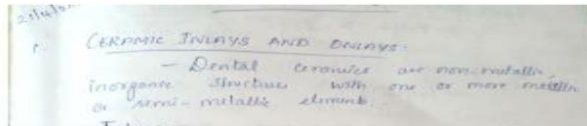 CERAMIC INLAYS AND ONLAYS:
- Dental ceramics are non-metallic,
inorganic structures with one or more metallic
or semi-metallic elements.